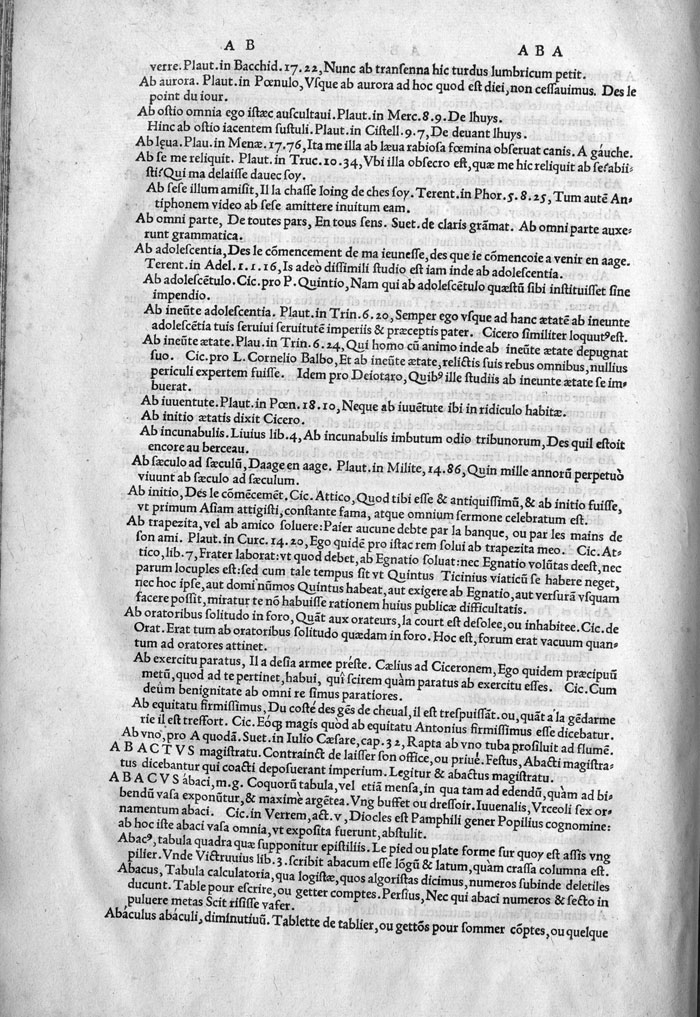 A B
A B A
verre. Plaut. in Bacchid. 17. 22, Nunc ab tranſenna hic turdus lumbricum petit.
Ab aurora. Plaut. in Pœnulo, Vſque ab aurora ad hoc quod eſt diei, non ceſſauimus. Des le
point du iour.
Ab oſtio omnia ego iſtæc auſcultaui. Plaut. in Merc. 8. 9. De lhuys.
Hinc ab oſtio iacentem ſuſtuli. Plaut. in Ciſtell. 9. 7, De deuant lhuys.
Ab lęua. Plau. in Menæ. 17. 76, Ita me illa ab læua rabioſa fœmina obſeruat canis. A gáuche.
Ab ſe me reliquit. Plaut. in Truc. 10. 34, Vbi illa obſecro eſt, quæ me hic reliquit ab ſe? abii=
ſti? Qui ma delaiſſe dauec ſoy.
Ab ſeſe illum amiſit, Il la chaſſe loing de ches ſoy. Terent. in Phor. 5. 8. 25, Tum autē An=
tiphonem video ab ſeſe amittere inuitum eam.
Ab omni parte, De toutes pars, En tous ſens. Suet. de claris grāmat. Ab omni parte auxe=
runt grammatica.
Ab adoleſcentia, Des le cōmencement de ma ieuneſſe, des que ie cōmencoie a venir en aage.
Terent. in Adel. 1. 1. 16, Is adeò diſſimili ſtudio eſt iam inde ab adoleſcentia.
Ab adoleſcētulo. Cic. pro P. Quintio, Nam qui ab adoleſcētulo quæſtū ſibi inſtituiſſet ſine
impendio.
Ab ineūte adoleſcentia. Plaut. in Trin. 6. 20, Semper ego vſque ad hanc ætatē ab ineunte
adoleſcētia tuis ſeruiui ſeruitutē imperiis & præceptis pater. Cicero ſimiliter loquutꝰ eſt.
Ab ineūte ætate. Plau. in Trin. 6. 24, Qui homo cū animo inde ab ineūte ætate depugnat
ſuo. Cic. pro L. Cornelio Balbo, Et ab ineūte ætate, relictis ſuis rebus omnibus, nullius
periculi expertem fuiſſe. Idem pro Deiotaro, Quibꝰ ille ſtudiis ab ineunte ætate ſe im=
buerat.
Ab iuuentute. Plaut. in Pœn. 18. 10, Neque ab iuuētute ibi in ridiculo habitæ.
Ab initio ætatis dixit Cicero.
Ab incunabulis. Liuius lib. 4, Ab incunabulis imbutum odio tribunorum, Des quil eſtoit
encore au berceau.
Ab ſæculo ad ſæculū, Daage en aage. Plaut. in Milite, 14. 86, Quin mille annorū perpetuò
viuunt ab ſæculo ad ſæculum.
Ab initio, Des le cōmēcemēt. Cic. Attico, Quod tibi eſſe & antiquiſſimū, & ab initio fuiſſe,
vt primum Aſiam attigiſti, conſtante fama, atque omnium ſermone celebratum eſt.
Ab trapezita, vel ab amico ſoluere: Païer aucune debte par la banque, ou par les mains de
ſon ami. Plaut. in Curc. 14. 20, Ego quidē pro iſtac rem ſolui ab trapezita meo. Cic. At=
tico, lib. 7, Frater laborat: vt quod debet, ab Egnatio ſoluat: nec Egnatio volūtas deeſt, nec
parum locuples eſt: ſed cum tale tempus ſit vt Quintus Ticinius viaticū ſe habere neget,
nec hoc ipſe, aut domi nūmos Quintus habeat, aut exigere ab Egnatio, aut verſurā vſquam
facere poſſit, miratur te nō habuiſſe rationem huius publicæ difficultatis.
Ab oratoribus ſolitudo in foro, Quāt aux orateurs, la court eſt deſolee, ou inhabitee. Cic. de
Orat. Erat tum ab oratoribus ſolitudo quædam in foro. Hoc eſt, forum erat vacuum quan=
tum ad oratores attinet.
Ab exercitu paratus, Il a deſia armee prēſte. Cælius ad Ciceronem, Ego quidem præcipuū
metū, quod ad te pertinet, habui, quì ſcirem quàm paratus ab exercitu eſſes. Cic. Cum
deûm benignitate ab omni re ſimus paratiores.
Ab equitatu firmiſſimus, Du coſté des gēs de cheual, il eſt treſpuiſſāt. ou, quāt à la gēdarme
rie il eſt treſfort. Cic. Eóq; magis quòd ab equitatu Antonius firmiſſimus eſſe dicebatur.
Ab vno, pro A quodā. Suet. in Iulio Cæſare, cap. 32, Rapta ab vno tuba proſiluit ad flumē.
ABACTVS magiſtratu. Contrainct de laiſſer ſon office, ou priué. Feſtus, Abacti magiſtra=
tus dicebantur qui coacti depoſuerant imperium. Legitur & abactus magiſtratu.
ABACVS ábaci, m. g. Coquorū tabula, vel etiā menſa, in qua tam ad edendū, quàm ad bi=
bendū vaſa exponūtur, & maximè argētea. Vng buffet ou dreſſoir. Iuuenalis, Vrceoli ſex or=
namentum abaci. Cic. in Verrem, act. v, Diocles eſt Pamphili gener Popilius cognomine:
ab hoc iſte abaci vaſa omnia, vt expoſita fuerunt, abſtulit.
Abacꝰ, tabula quadra quæ ſupponitur epiſtiliis. Le pied ou plate forme ſur quoy eſt aſſis vng
pilier. Vnde Victruuius lib. 3. ſcribit abacum eſſe lōgū & latum, quàm craſſa columna eſt.
Abacus, Tabula calculatoria, qua logiſtæ, quos algoriſtas dicimus, numeros ſubinde deletiles
ducunt. Table pour eſcrire, ou getter comptes. Perſius, Nec qui abaci numeros & ſecto in
puluere metas Scit riſiſſe vafer.
Abáculus abáculi, diminutiuū. Tablette de tablier, ou gettōs pour ſommer cōptes, ou quelque